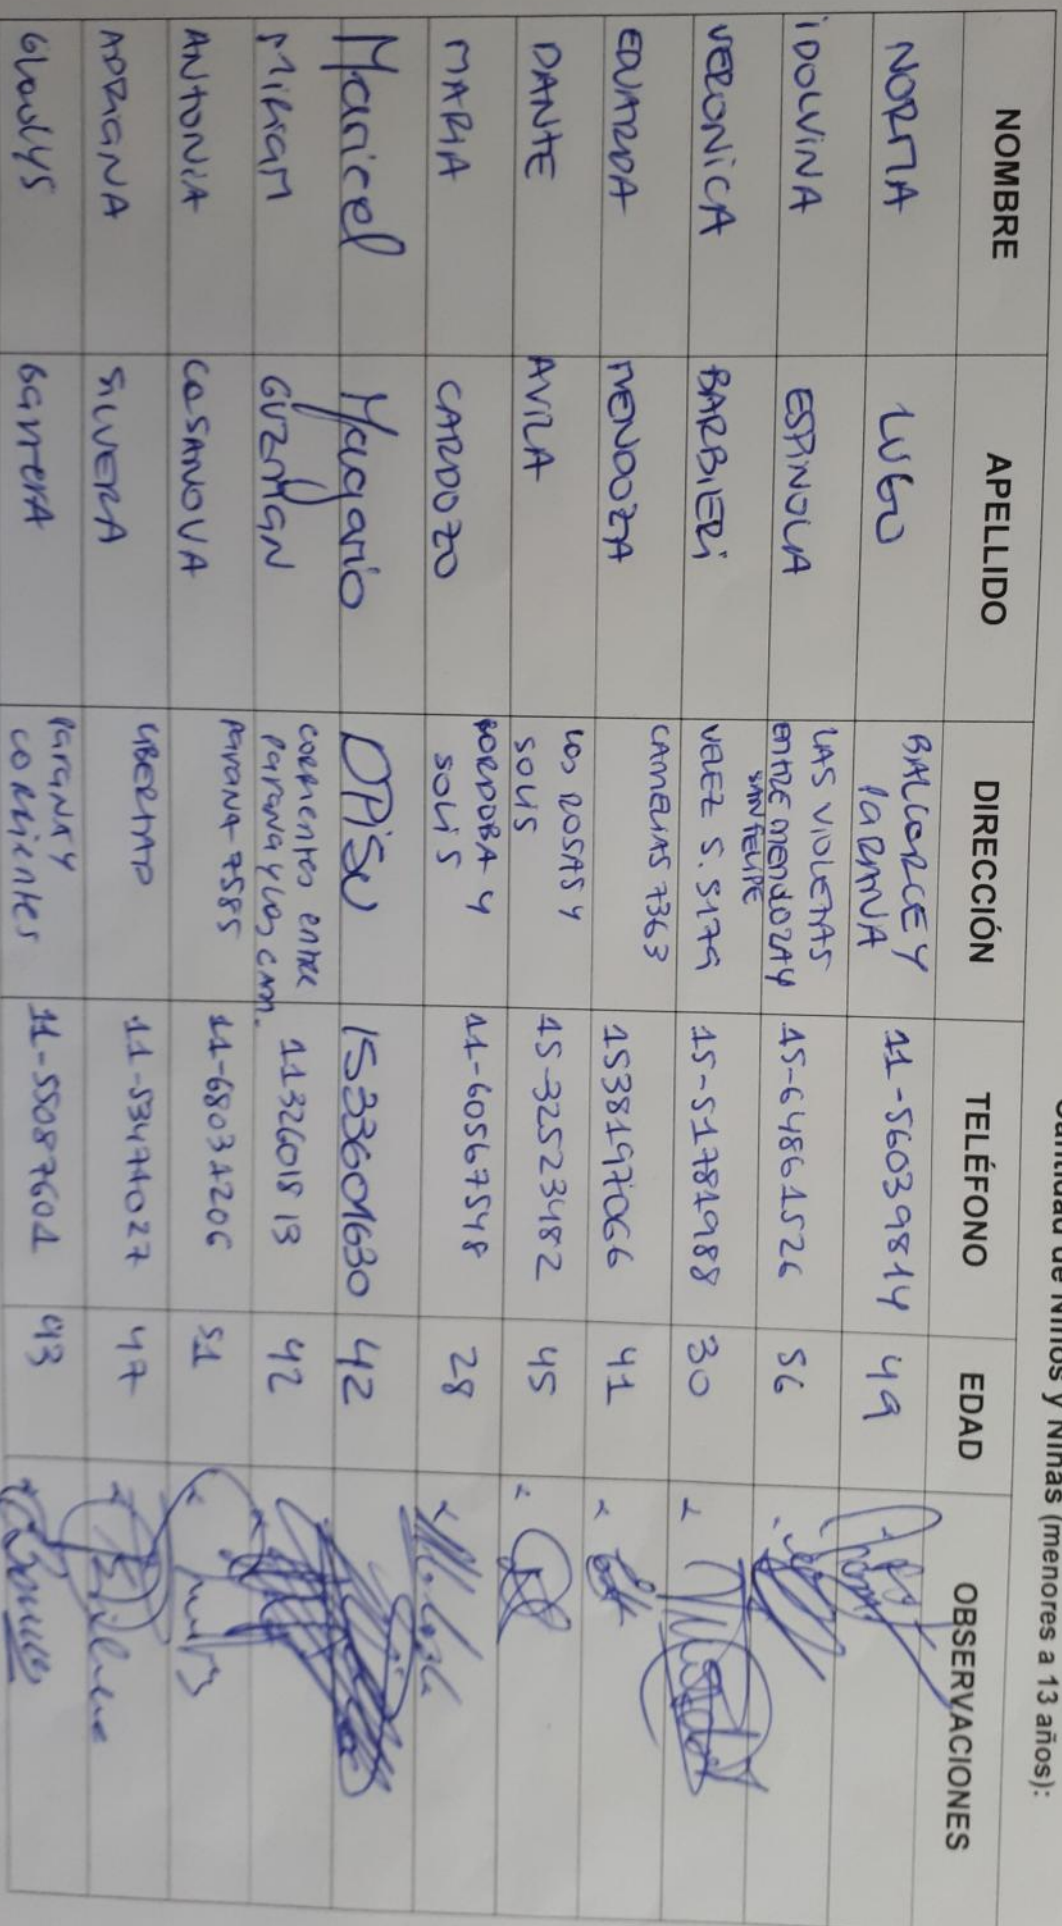 Cantidad de Niños y Niñas (menores a 13 años):
NOMBRE APELLIDO DIRECCIÓN TELÉFONO EDAD OBSERVACIONES
NORMA LUGO BALCARCE Y PARANA 11-56039814 49
IDOLVINA ESPINOLA LAS VIOLETAS entre MENDOZA Y SAN FELIPE 15-64861526 56
VERONICA BARBIERI VELEZ S. 5179 15-51781988 30
EDUARDA MENDOZA CAMELIAS 7363 1538197066 41
DANTE AVILA LOS ROSAS Y SOLIS 15-32523482 45
MARIA CARDOZO CORDOBA Y SOLIS 11-60567548 28
Maricel Magario OPISU 1533601630 42
MIRIAM GUZMAN corrientes entre Parana y Las CAM. 1132601813 42
ANTONIA CASANOVA PARANA 7585 11-68031206 51
ADRIANA SILVERA LIBERTAD 11-53471027 47
Gladys Barrera Parana y corrientes 11-55087601 43